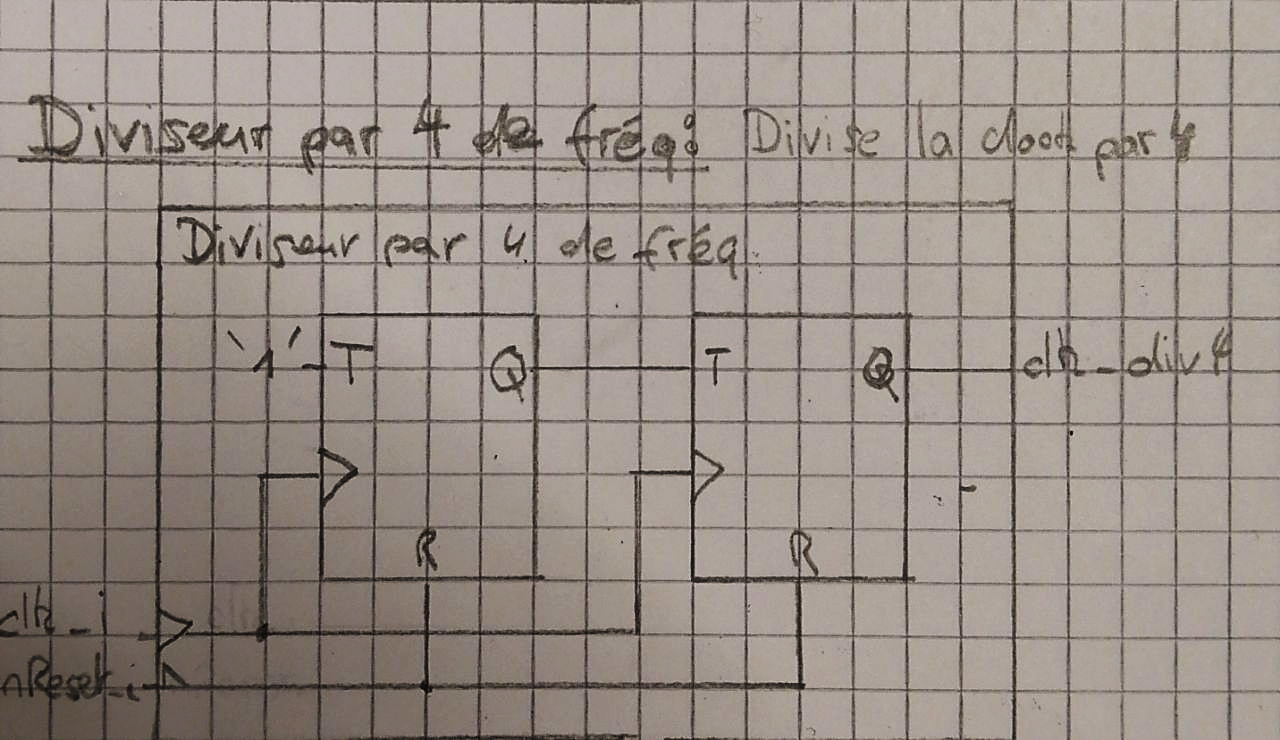 Diviseur par 4 de fréq: Divise la clock par 4
Diviseur par 4 de fréq.
'1' T Q T Q clk_div4
R R
clk_i
nReset_i